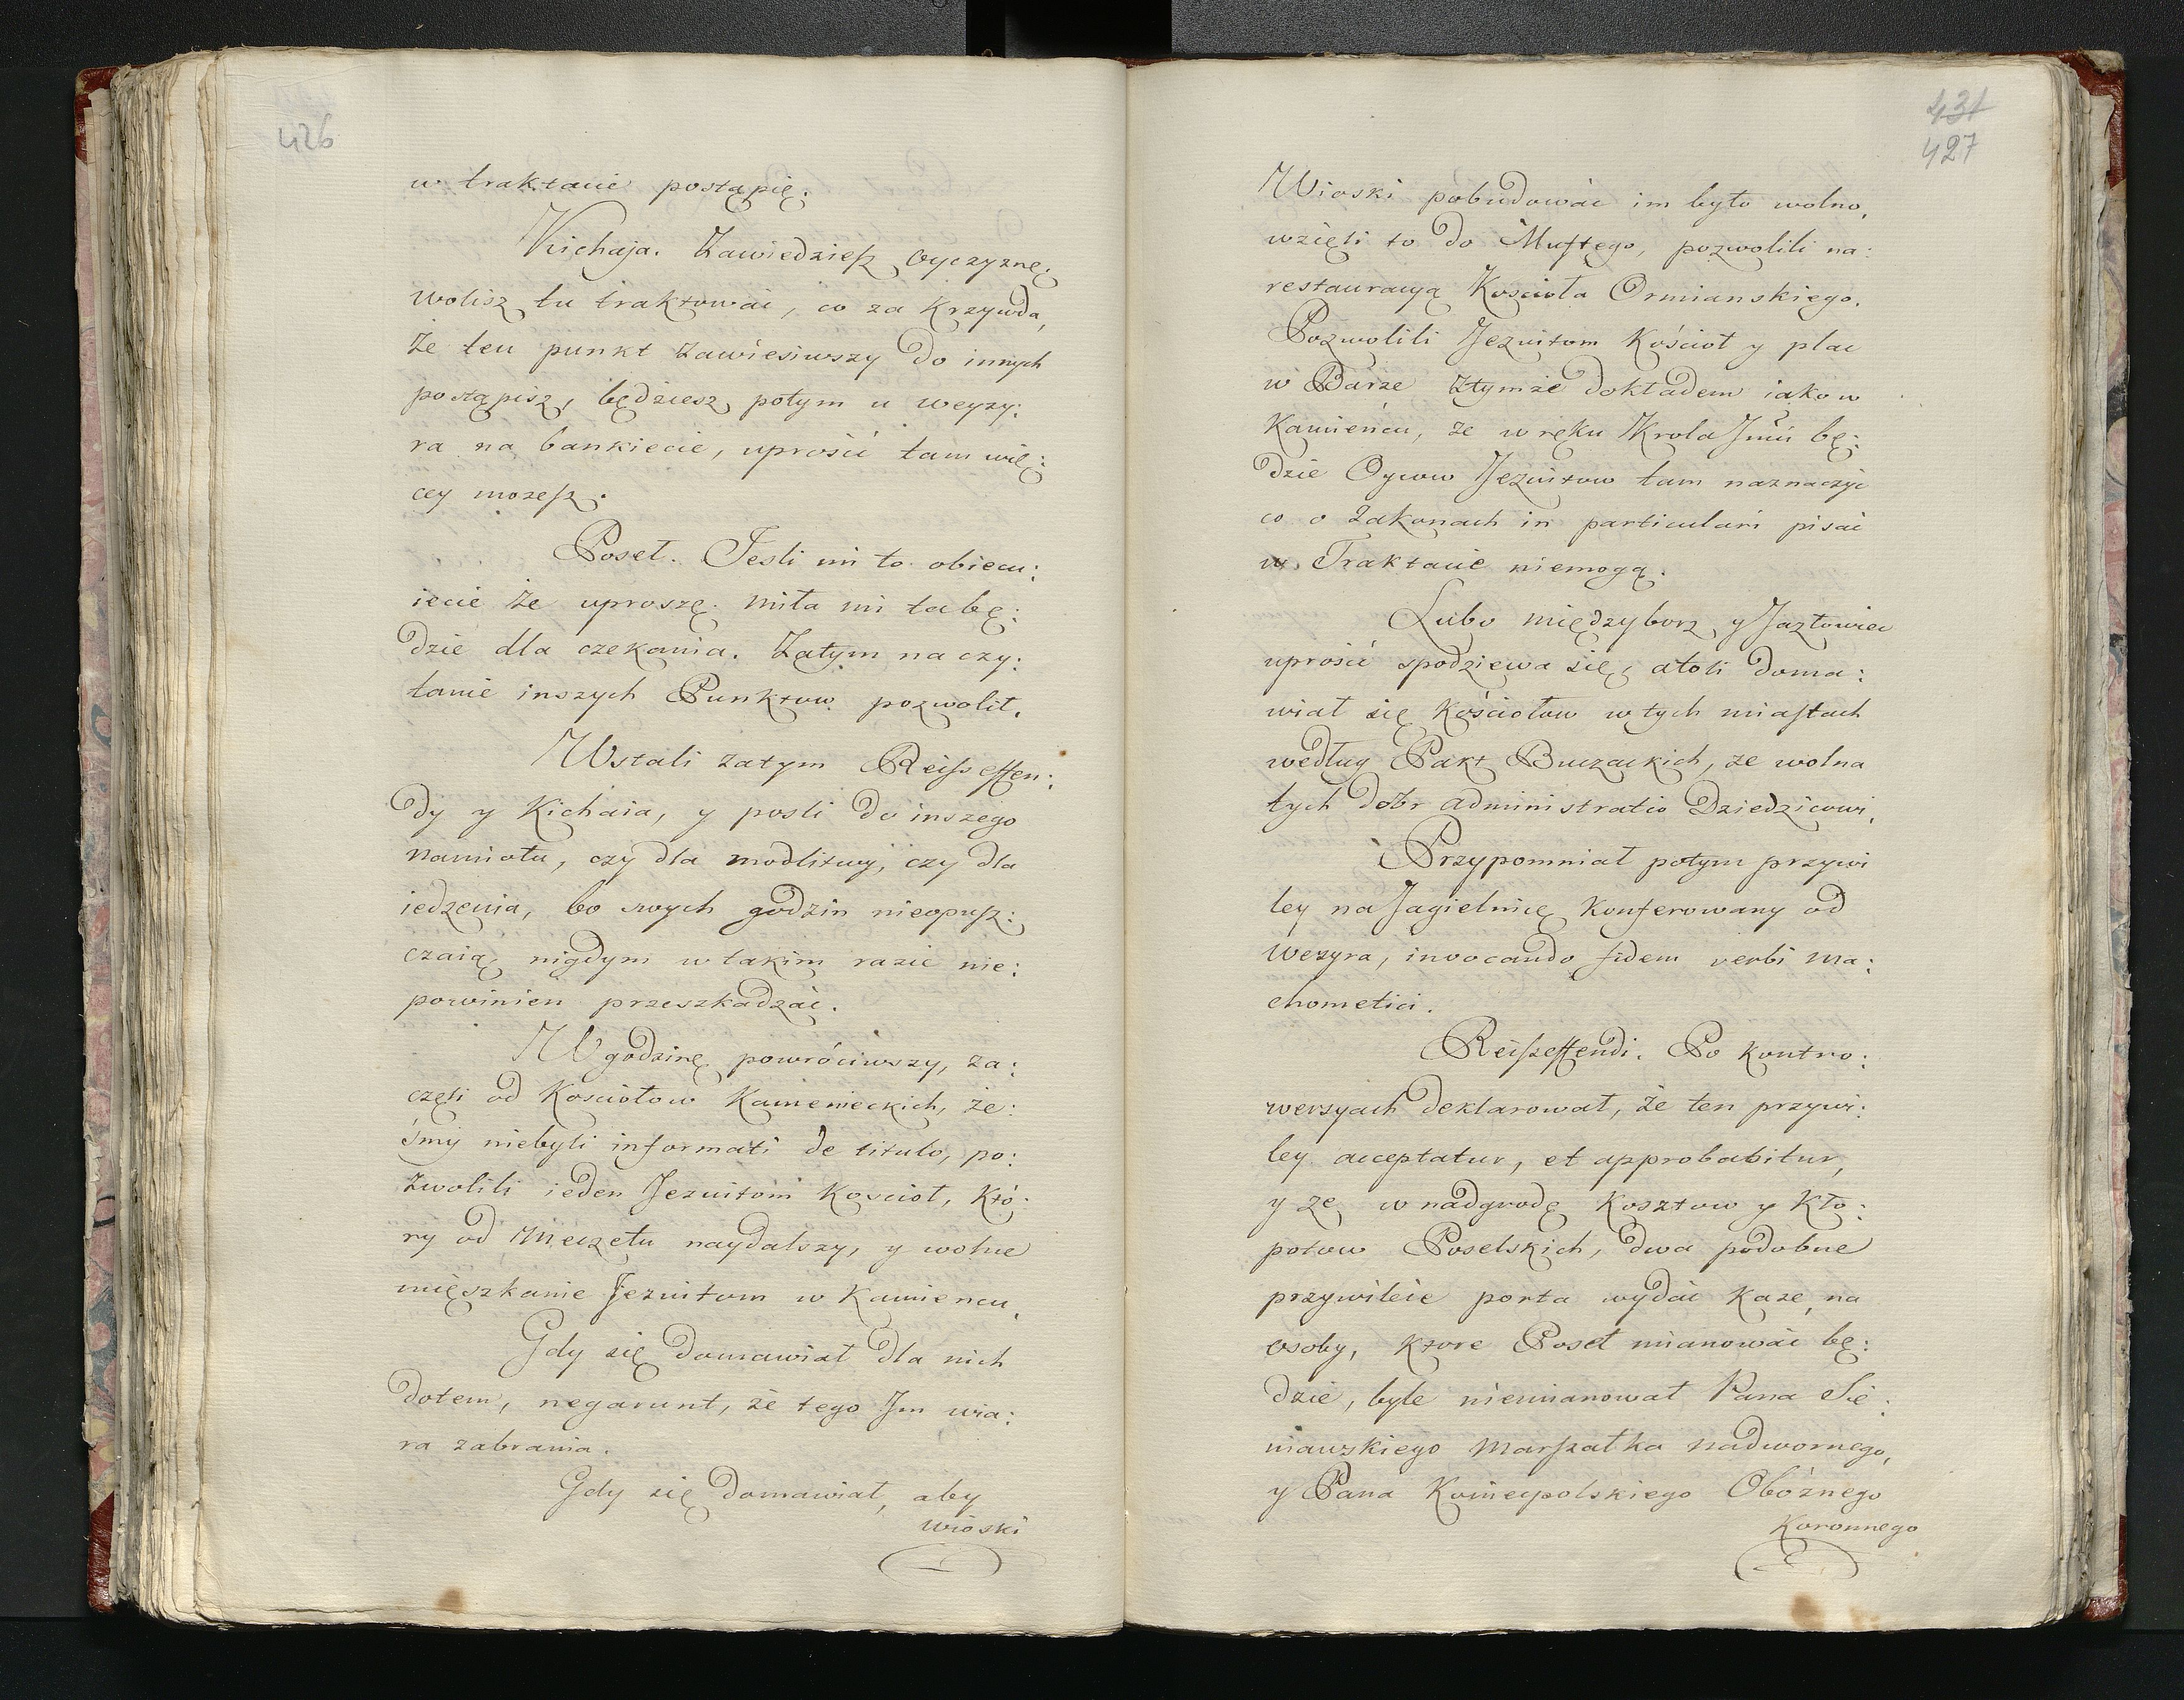 426
w traktacie postąpię.
Kichaja. Zawiedziesz oyczyznę.
wolisz tu traktować, co za krzywda,
że ten punkt zawiesiwszy do innych
postąpisz, będziesz potym u wezy:
ra na bankiecie, uprosić tam wię:
cey możesz.
Poseł. Jesli mi to obiecu:
iecie że uproszę. miła mi ta bę:
dzie dla czekania. Zatym na czy:
tanie inszych Punktow pozwolił.
Wstali zatym Reisseffen:
dy y Kichaia, y posli do inszego
namiotu, czy dla modlitwy, czy dla
iedzenia, bo swych godzin nieopusz:
czaią nigdym w takim razie nie:
powinien przeszkadzać.
W godzinę powróciwszy, za:
częli od Kosciołow Kamienieckich, że:
śmy niebyli informati de titulo, po:
zwolili ieden Jezuitom Koscioł, któ:
ry od Meczetu naydalszy, y wolne
mięszkanie Jezuitom w Kamiencu.
Gdy się domawiał dla nich
dotem, negarunt, że tego Jm wia:
ra zabrania.
Gdy się domawiał, aby
wioski
431
427
Wioski pobudować im było wolno,
wzięli to do Muftego, pozwolili na:
restauracyą Kosciola Ormianskiego.
Pozwolili Jezuitom Kościoł y plac
w Barze z tymże dokładem iako w
Kamieńcu, że w ręku Krola Jmći bę:
dzie Oycow Jezuitow tam naznaczyć
co o Zakonach in particulari pisać
w Traktacie niemogą.
Lubo międzyborz y Jazłowiec
uprosić spodziewa się, atoli doma:
wiał się Kościołow w tych miastach
według Pakt Buczackich, że wolna
tych dobr administratio Dziedzicowi.
Przypomniał potym przywi
ley na Jagielnicę konferowany od
wezyra, invocando fidem verbi ma:
chometici.
Reiszeffendi. Po kontro:
wersyach deklarował, że ten przywi:
ley acceptatur, et approbabitur,
y że w nadgrodę kosztow y kło:
potow Poselskich, dwa podobne
przywileie porta wydać każe, na
osoby, ktore Poseł mianować bę:
dzie, byle niemianował Pana Sie:
niawskiego Marszałka nadwornego,
y Pana Koniecpolskiego Obóżnego
Koronnego